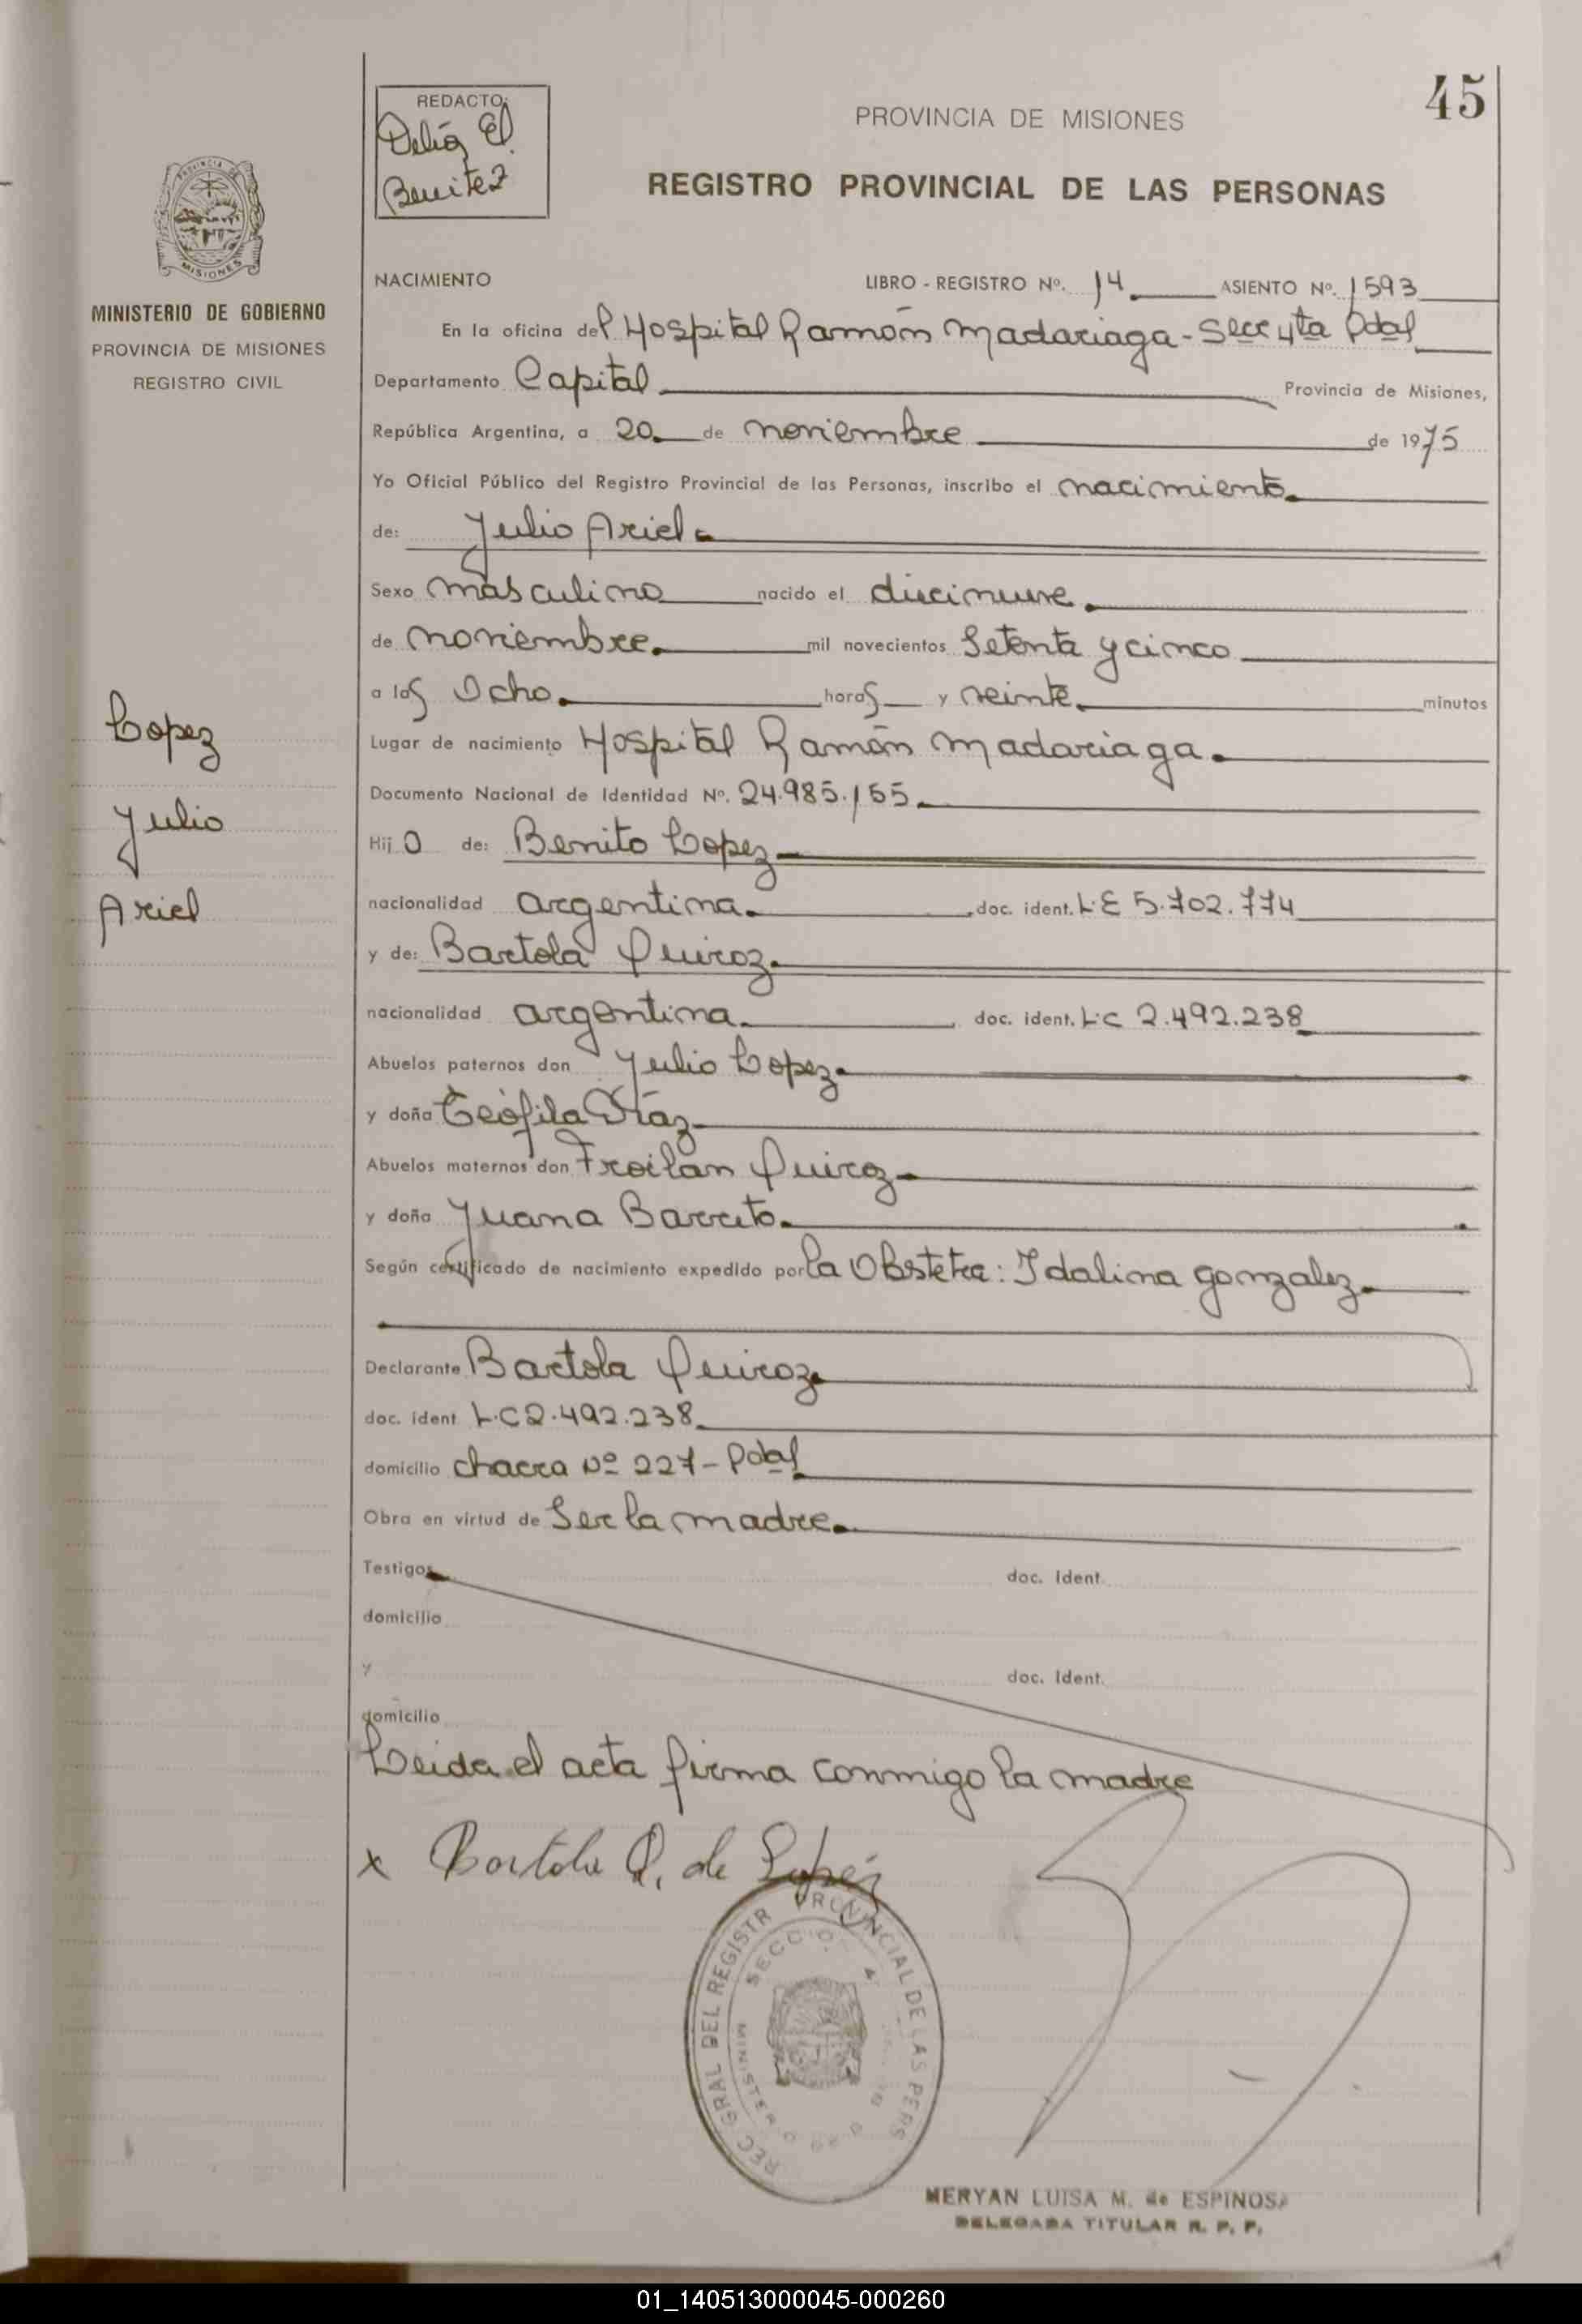 45
REDACTO:
Delia E.
Benitez
PROVINCIA DE MISIONES
REGISTRO PROVINCIAL DE LAS PERSONAS
MISIONES
MINISTERIO DE GOBIERNO
PROVINCIA DE MISIONES
REGISTRO CIVIL
NACIMIENTO LIBRO - REGISTRO Nº. 14 ASIENTO Nº. 1593
En la oficina del Hospital Ramón Madariaga - Secc 4ta Pdas
Departamento Capital Provincia de Misiones,
República Argentina, a 20 de noviembre de 1975
Yo Oficial Público del Registro Provincial de las Personas, inscribo el nacimiento
de: Julio Ariel
Sexo masculino nacido el diecinueve
de noviembre mil novecientos setenta y cinco
a las Ocho horas y veinte minutos
Lugar de nacimiento Hospital Ramón Madariaga
Documento Nacional de Identidad Nº. 24.985.155
Hijo de: Benito Lopez
nacionalidad argentina doc. ident. L.E 5.702.774
y de: Bartola Quiroz
nacionalidad argentina doc. ident. L.C 2.492.238
Abuelos paternos don Julio Lopez
y doña Teófila Díaz
Abuelos maternos don Froilán Quiroz
y doña Juana Barreto
Según certificado de nacimiento expedido por la Obstetra: Idalina Gonzalez
Declarante Bartola Quiroz
doc. ident. L.C 2.492.238
domicilio chacra Nº 227 - Pdas
Obra en virtud de Ser la madre
Testigos doc. Ident.
domicilio
y doc. Ident.
domicilio
Leida el acta firma conmigo la madre
x Bartola Q. de López
MERYAN LUISA M. de ESPINOSA
DELEGADA TITULAR R. P. P.
Lopez
Julio
Ariel
01_140513000045-000260